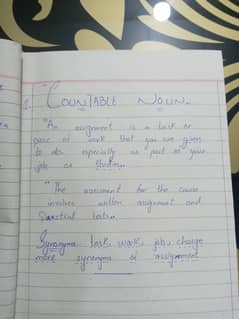 "COUNTABLE NOUN"
"An assignment is a task or
piece of work that you are given
to do especially as part of your
job or studies.
"The assessment for the course
involves written assignment and
practical tests.
Synonyms: task, work, job, charge
more synonyms of assignment